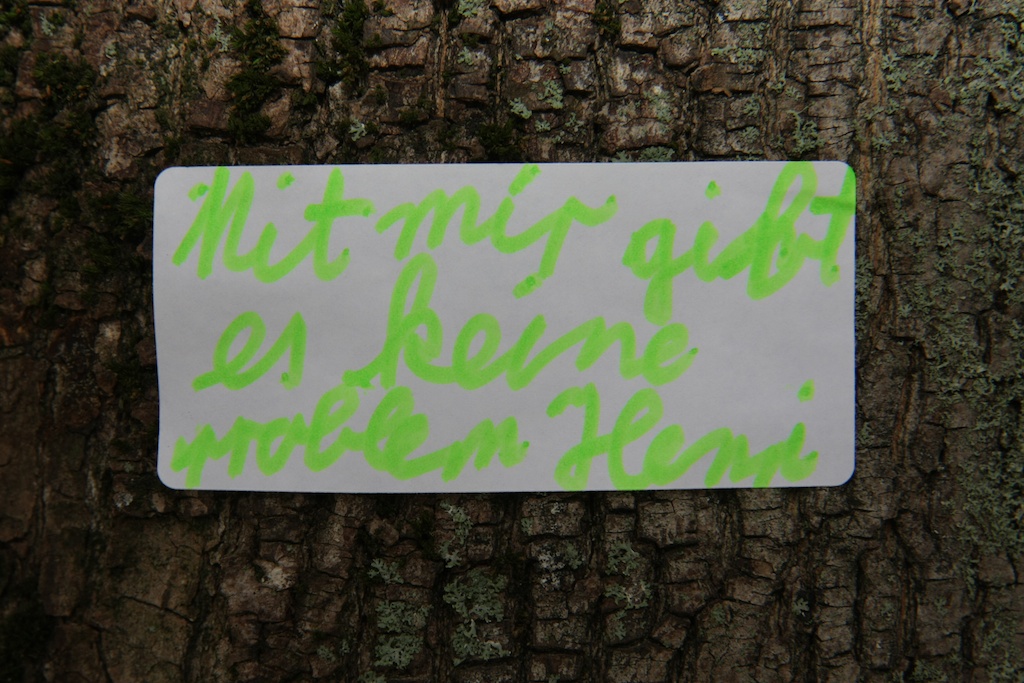 Mit mir gibt
es keine
problem Henri